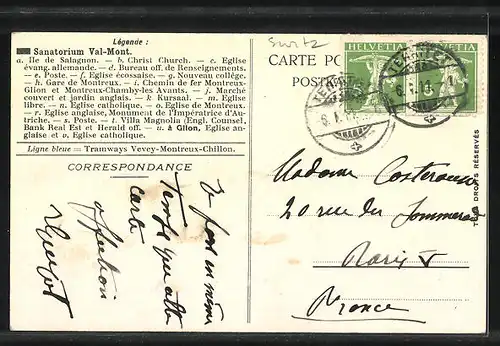 Légende :
Sanatorium Val-Mont.
a. Ile de Salagnon. - b. Christ Church. - c. Eglise
évang. allemande. - d. Bureau off. de Renseignements.
- e. Poste. - f. Eglise écossaise. - g. Nouveau collège.
- h. Gare de Montreux. - i. Chemin de fer Montreux-
Glion et Montreux-Chamby-les Avants. - j. Marché
couvert et jardin anglais. - k Kursaal. - m. Eglise
libre. - n. Eglise catholique. - o. Eglise de Montreux.
- r. Eglise anglaise, Monument de l'Impératrice d'Au-
triche. - s. Poste. - t. Villa Magnolia (Engl. Counsel,
Bank Real Est et Herald off. - u. à Glion, Eglise an-
glaise et v. Eglise catholique.
Ligne bleue = Tramways Vevey-Montreux-Chillon.
CORRESPONDANCE
Je pars en même
temps que cette
carte
affection
Switz
CARTE PO
POSTK
HELVETIA
HELVETIA
5
TERRITET
Madame
20 rue du Sommerard
Paris V
France
TOUS DROITS RÉSERVÉS